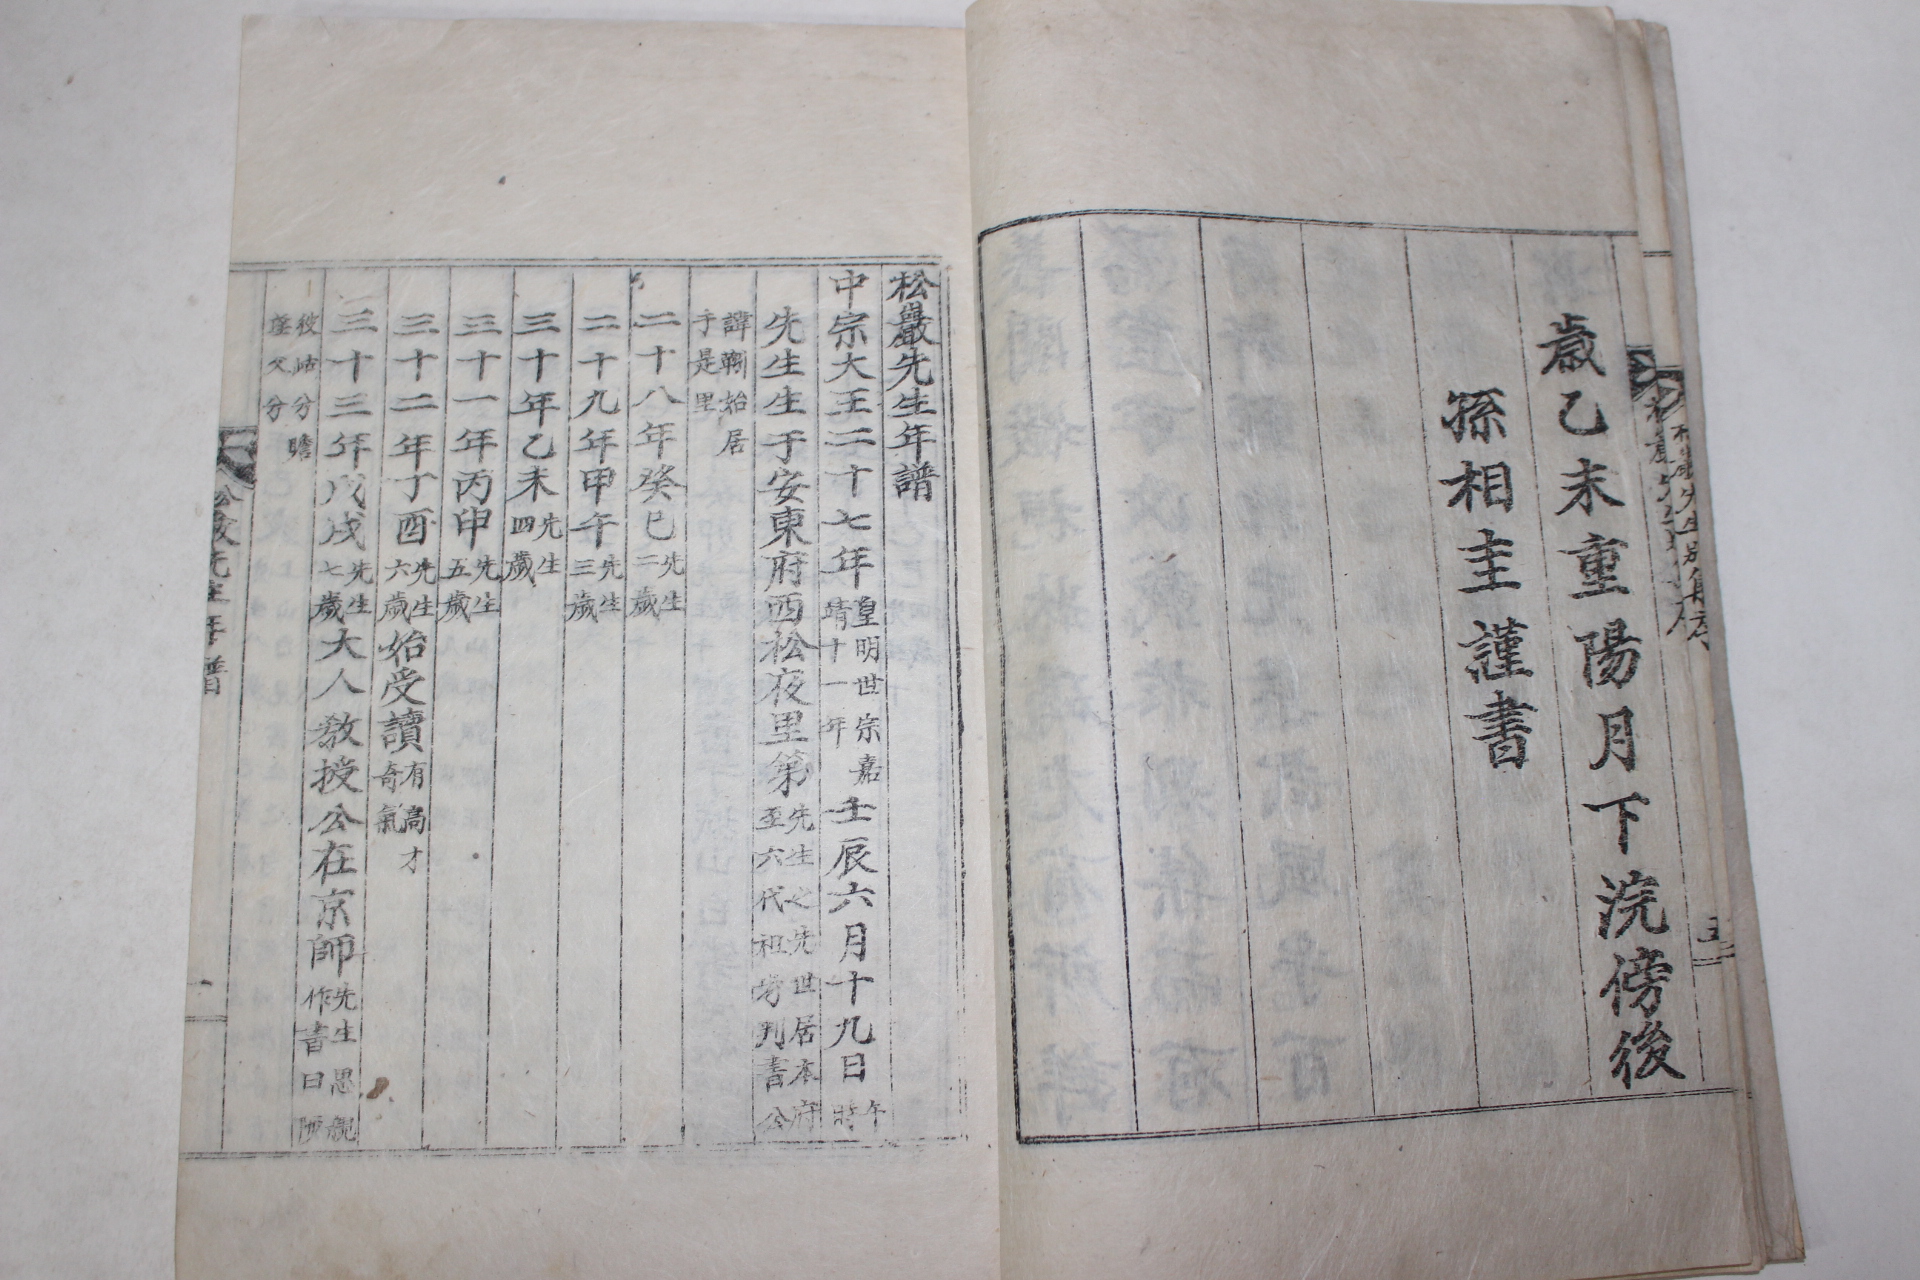 歲乙未重陽月下浣傍後
孫相圭謹書
松巖先生別集序
五
松巖先生年譜
中宗大王二十七年皇明世宗嘉靖十一年壬辰六月十九日午時
先生生于安東府西松夜里第先生之先世居本府至六代祖考判書公
諱靷始居于是里
二十八年癸巳先生二歲
二十九年甲午先生三歲
三十年乙未先生四歲
三十一年丙申先生五歲
三十二年丁酉先生六歲始受讀有高才奇氣
三十三年戊戌先生七歲大人教授公在京師先生思親作書曰陟
彼岵分瞻望父分
松巖先生年譜
一